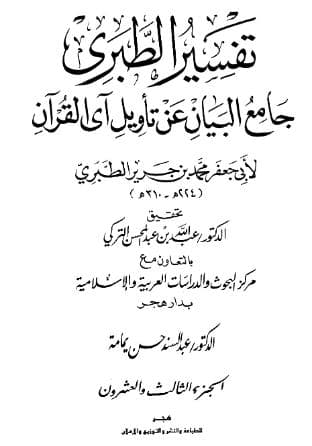 تفسير الطبرى
جامع البيان عن تأويل آى القرآن
لأبى جعفر محمد بن جرير الطبرى
(٢٢٤هـ - ٣١٠هـ)
تحقيق
الدكتور/عبد الله بن عبد المحسن التركى
بالتعاون مع
مركز البحوث والدراسات العربية والإسلامية
بدار هجر
الدكتور/عبد السند حسن يمامة
الجزء الثالث والعشرون
هجر
للطباعة والنشر والتوزيع والإعلان